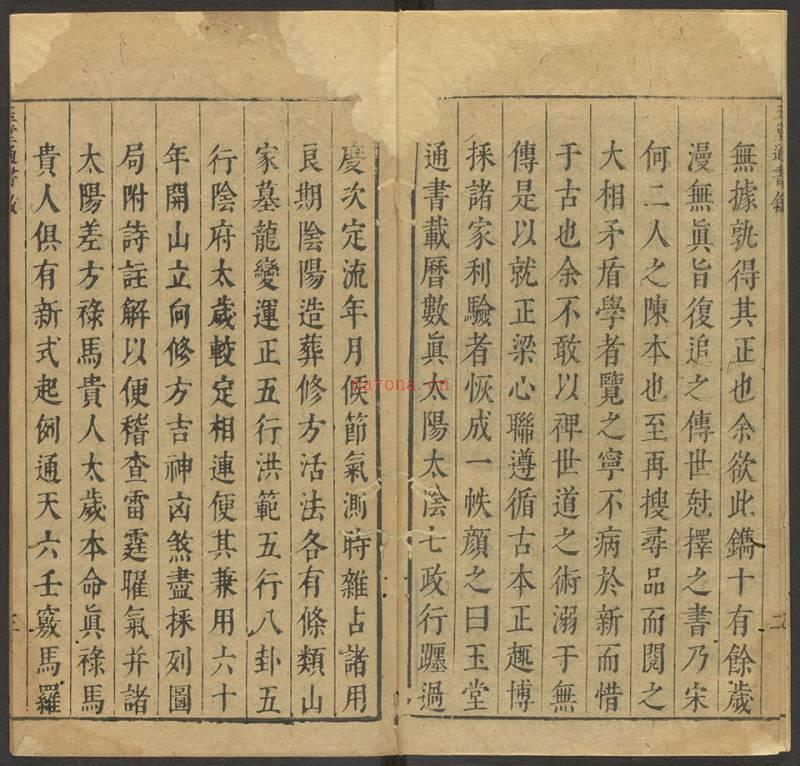 無據孰得其正也余欲此鐫十有餘歲
漫無眞旨復追之傳世尅擇之書乃宋
何二人之陳本也至再搜尋品而閱之
大相矛盾學者覽之寧不病於新而惜
于古也余不敢以裨世道之術溺于無
傳是以就正梁心聯遵循古本正趣博
採諸家利驗者恢成一帙顔之曰玉堂
通書載曆數眞太陽太陰七政行躔過
慶次定流年月候節氣測時雜占諸用
良期陰陽造葬修方活法各有條類山
家墓龍變運正五行洪範五行八卦五
行陰府太歲較定相連便其兼用六十
年開山立向修方吉神凶煞盡採列圖
局附詩註解以便稽查雷霆曜氣并諸
太陽差方祿馬貴人太歲本命眞祿馬
貴人俱有新式起例通天六壬竅馬羅
玉堂通書
二
三